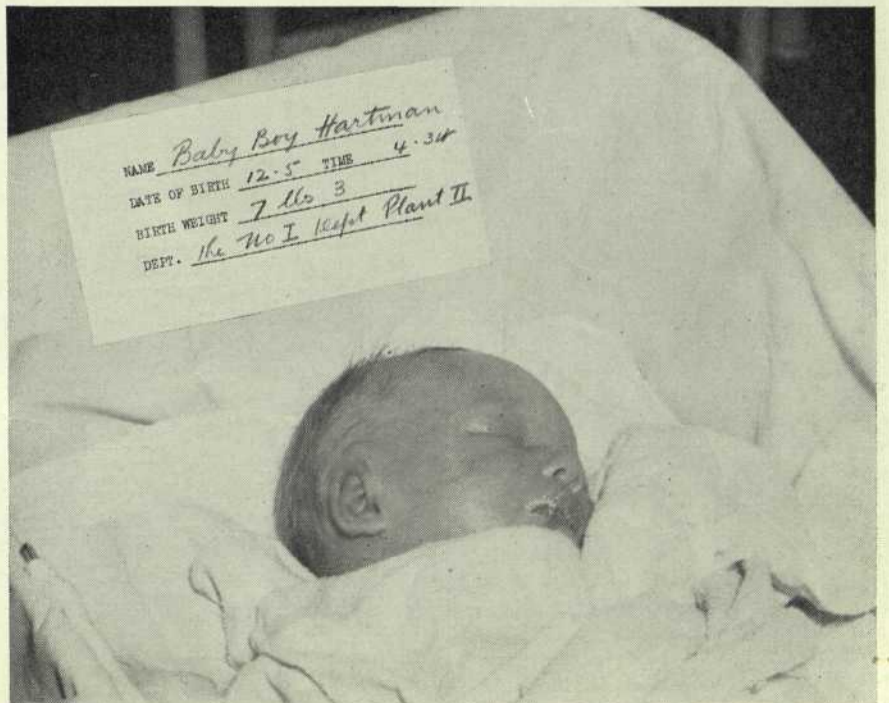 NAME Baby Boy Hartman
DATE OF BIRTH 12-5 TIME 4.34
BIRTH WEIGHT 7 lbs 3
DEPT. the No I Dept Plant II